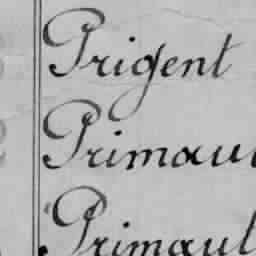 Prigent
Primau
Primaul